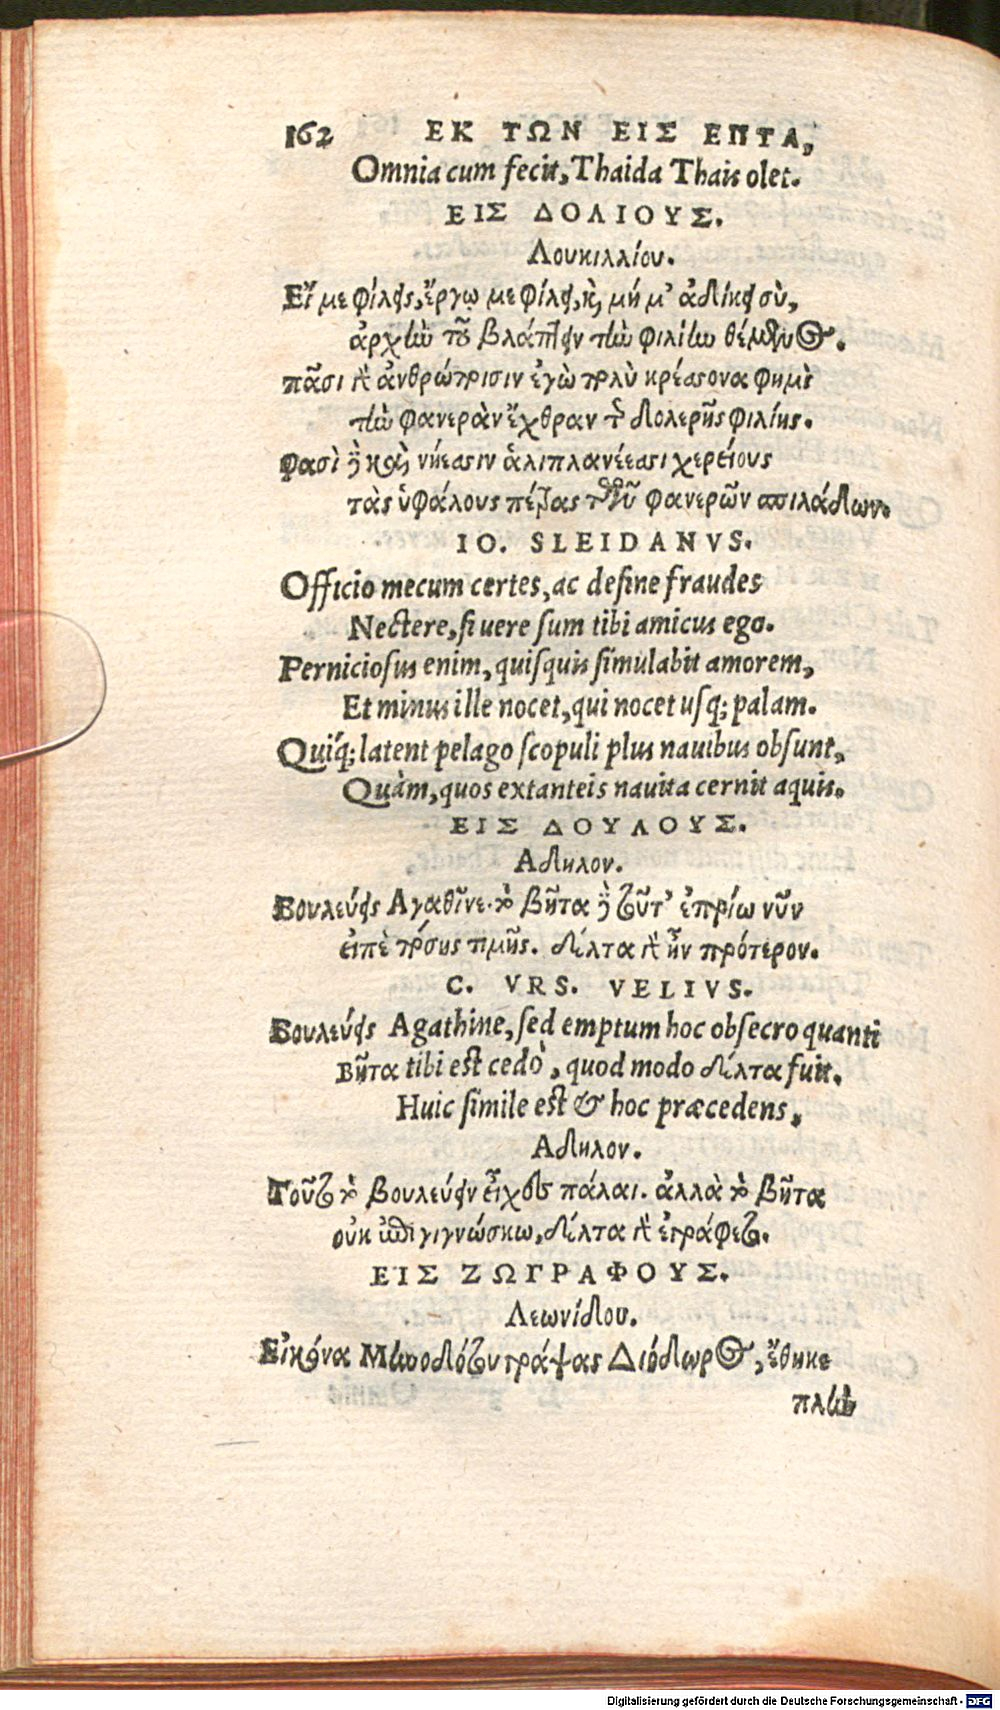 162 ΕΚ ΤΩΝ ΕΙΣ ΕΠΤΑ,
Omnia cum fecit, Thaida Thais olet.
ΕΙΣ ΔΟΛΙΟΥΣ.
Λουκιλλίου.
Εἴ με φιλεῖς, ἔργῳ με φίλει, καὶ μή μ' ἀδίκει σὺ,
ἀρχὴν τοῦ βλάπτειν τὴν φιλίην θέμενος.
πᾶσι γὰρ ἀνθρώποισιν ἐγὼ πολὺ κρέασονα φημὶ
τὴν φανερὰν ἔχθραν τῆς δολερῆς φιλίης.
φασὶ δὲ καὶ νήεασιν ἁλιπλανέεασι χερείους
τὰς ὑφάλους πέτρας τῶν φανερῶν σπιλάδων.
IO. SLEIDANVS.
Officio mecum certes, ac desine fraudes
Nectere, si uere sum tibi amicus ego.
Perniciosus enim, quisquis simulabit amorem,
Et minus ille nocet, qui nocet usq; palam.
Quiq; latent pelago scopuli plus nauibus obsunt,
Quàm, quos extanteis nauita cernit aquis.
ΕΙΣ ΔΟΥΛΟΥΣ.
Αδηλον.
Βουλεύεις Αγαθῖνε. τὸ βῆτα δὲ τοῦτ' ἐπρίω νῦν
εἰπὲ πόσης τιμῆς. δέλτα γὰρ ἦν πρότερον.
C. VRS. VELIVS.
Βουλεύεις Agathine, sed emptum hoc obsecro quanti
Βῆτα tibi est cedò, quod modo δέλτα fuit.
Huic simile est & hoc præcedens,
Αδηλον.
Τοῦτο τὸ βουλεύειν εἶχες πάλαι. ἀλλὰ τὸ βῆτα
οὐκ ἐπιγιγνώσκω, δέλτα γὰρ ἐγράφετο.
ΕΙΣ ΖΩΓΡΑΦΟΥΣ.
Λεωνίδου.
Εἰκόνα Μηνοδότου γράψας Διόδωρος, ἔθηκε
πλὴν
Digitalisierung gefördert durch die Deutsche Forschungsgemeinschaft - DFG